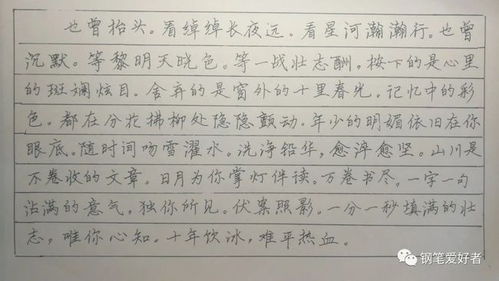 也曾抬头。看绰绰长夜远，看星河瀚瀚行。也曾
沉默。等黎明天晓色。等一战壮志酬，按下的是心里
的斑斓炫目。舍弃的是窗外的十里春光。记忆中的彩
色。都在分花拂柳处隐隐颤动。年少的明媚依旧在你
眼底。随时间吻雪濯水。洗净铅华，愈淬愈坚。山川是
不卷收的文章。日月为你掌灯伴读。万卷书尽，一字一句
沾满的意气，独你所见。伏案照影。一分一秒填满的壮
志，唯你心知。十年饮冰，难平热血。
钢笔爱好者